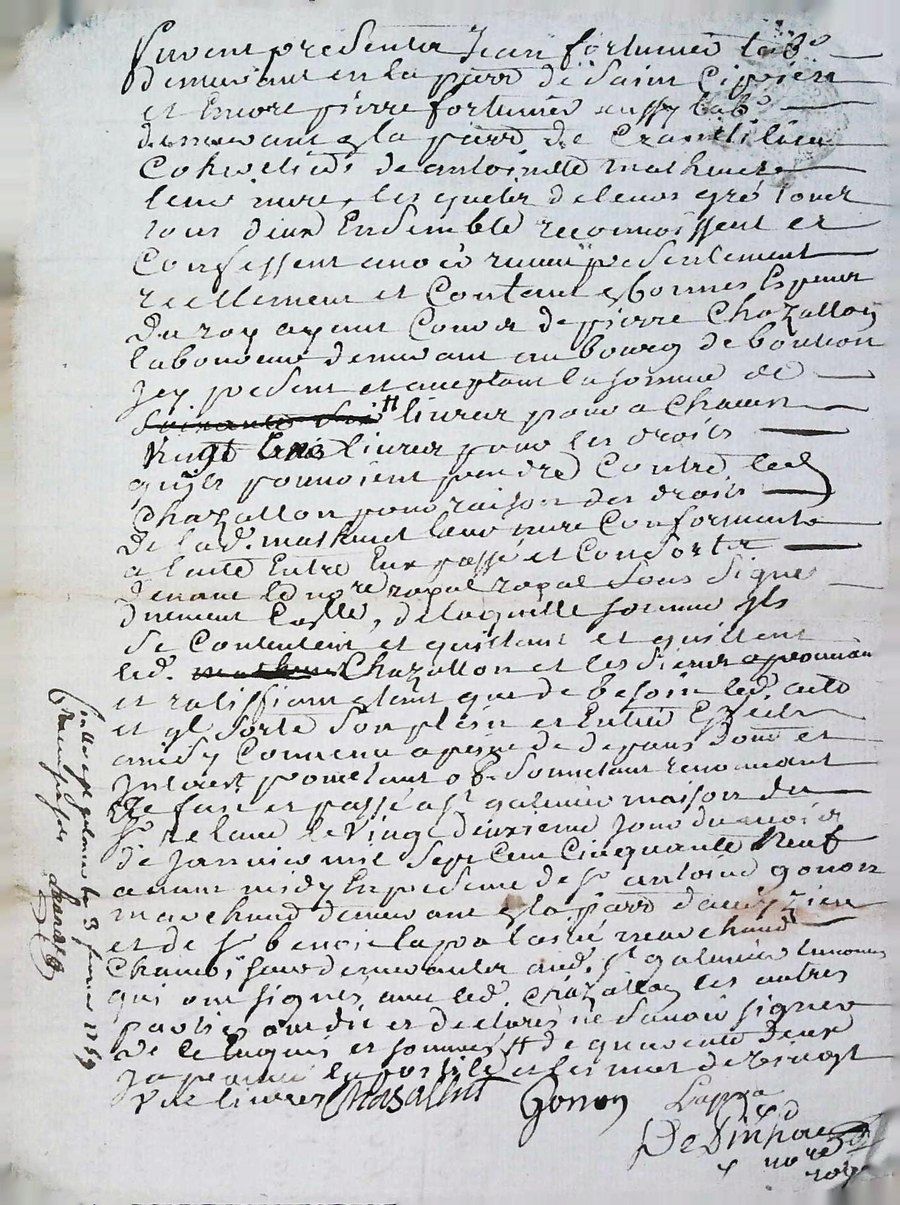 furent presents Jean fortunier lab.
demeurant en la parr de Saint Ciprien
et Encore pierre fortunier aussy lab.
demeurant en la parr de Craintilieu
Cohéritiers de antoinette mathevet
leur mere, lesquels de leurs grés tous
tous deux Ensemble reconnoissent et
Confessent avoir reçeu presentement
reellement et Contant en bonnes Especes
Du roy ayant Cours de pierre Chazallon
laboureur demeurant au bourg de bouthon
jcy present et acceptant la somme de
livres pour a Chacun
Vingt livres pour les droits
quils pouvoient prendre Contre led
Chazallon pour raison des droits
de lad. mathevet leur mere Conformement
a lacte Entre Eux passé et
devant le no.re royal royal sous signé
, de laquelle somme ils
se Contentent et quittant et quittent
led. Chazallon et les siens approuvant
et ratiffiant en tant que de besoin led. acte
et quil sorte son plein et Entier Effect
ainsy Convenu a peine de depans dom et
jnterest promettant ob. soumettant renonçant
fait et passé a st galmier maison du
sr le vingt deuxieme jour du mois
de janvier mil sept Cent Cinquante Neuf
avant midy En presence de sr antoine gonon
marchand demeurant en la parr
et de sr benoit lapra marchand
demeurants aud. st galmier temoins
qui ont signés avec led. Chazallon les autres
parties ont dit et declarés ne savoir signer
de ce Enquis et sommés de quarante deux
et les mot de Vingt
livres Chasallont Gonon Lapra
no.re roy.
Controllé a st galmier le 3 fevrier 1759